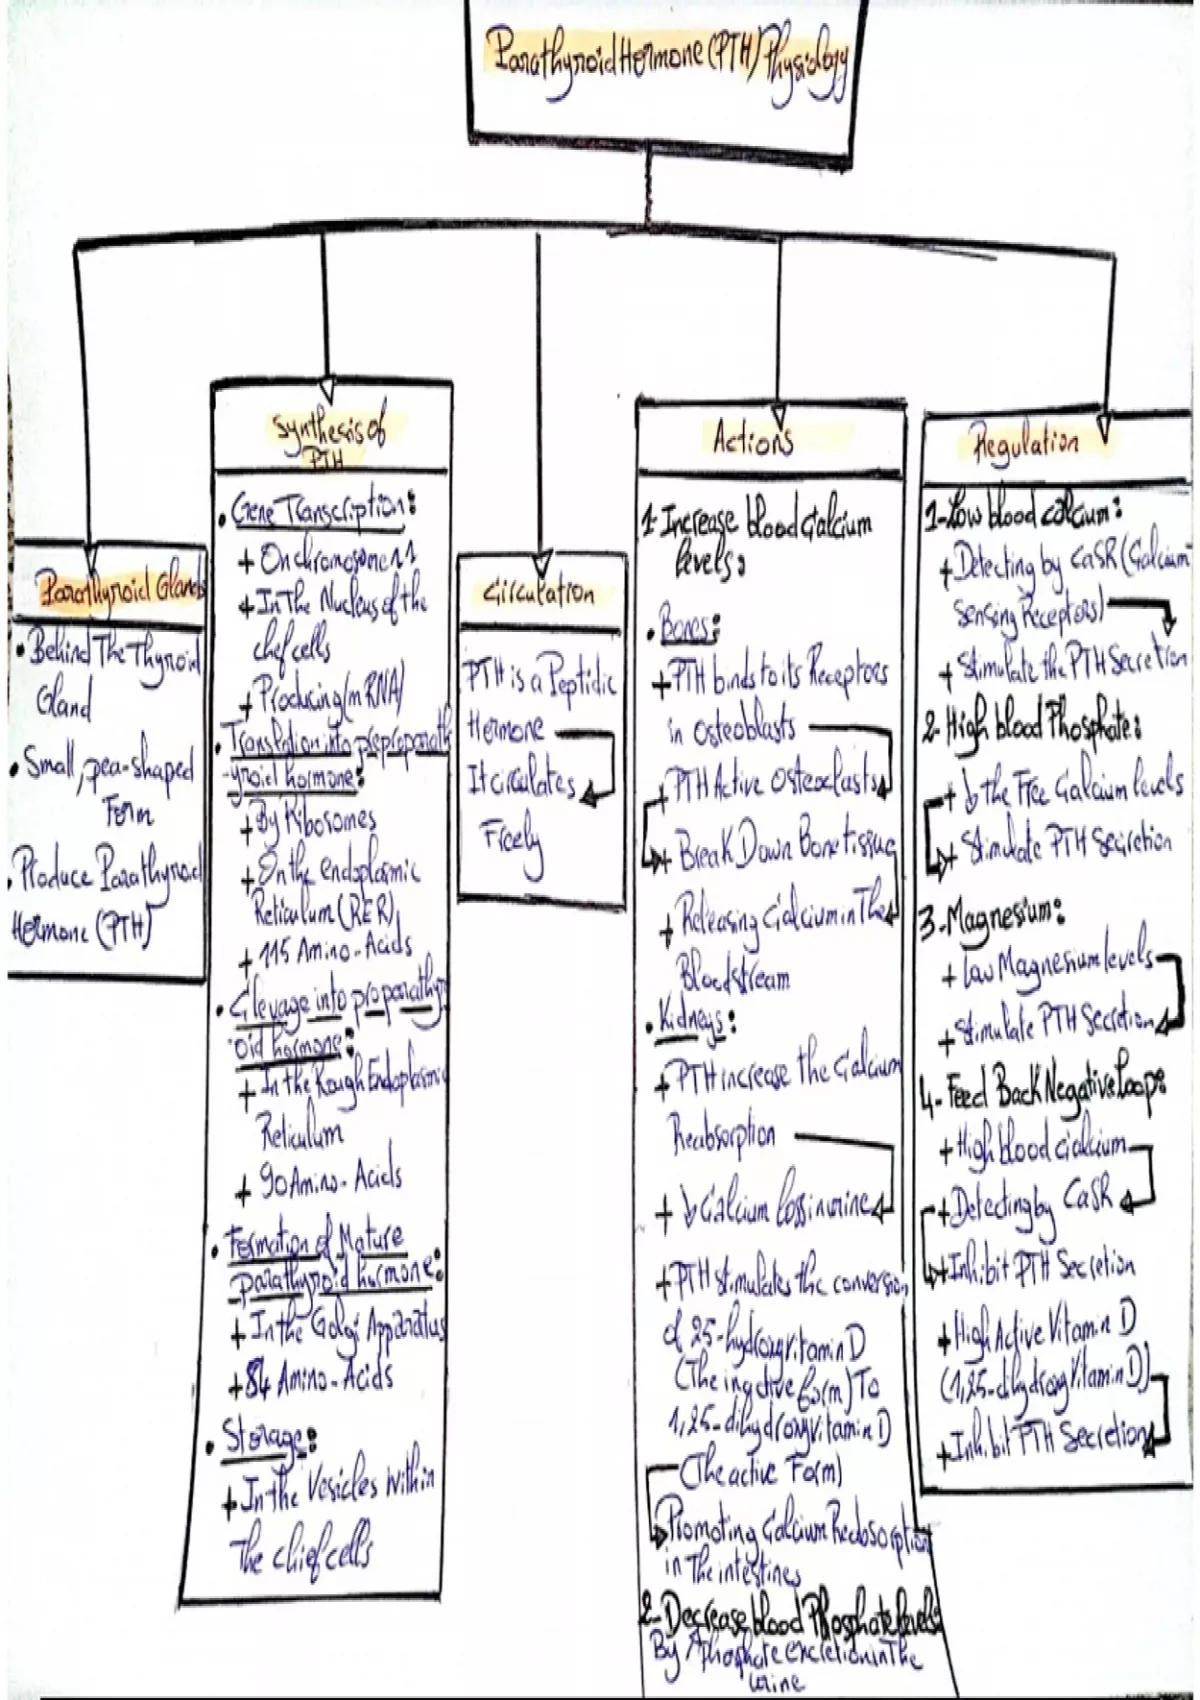 Parathyroid Hormone (PTH) Physiology
Parathyroid Glands
• Behind The Thyroid
Gland
• Small, pea-shaped
Form
• Produce Parathyroid
Hormone (PTH)
Synthesis of
PTH
• Gene Transcription:
+ On chromosome 11
+ In The Nucleus of the
chef cells
+ Producing (mRNA)
• Translation into preproparath
-yroid hormone:
+ By Ribosomes
+ On the endoplasmic
Reticulum (RER)
+ 115 Amino-Acids
• Clevage into proparathyr
oid hormone:
+ In the Rough Endoplasmic
Reticulum
+ 90 Amino-Acids
• Formation of Mature
parathyroid hormone:
+ In the Golgi Apparatus
+ 84 Amino-Acids
• Storage:
+ In the Vesicles within
The chief cells
Circulation
PTH is a Peptidic
Hormone
It circulates
Freely
Actions
1- Increase blood Calcium
levels:
• Bones:
+ PTH binds to its Receptors
in Osteoblasts
+ PTH Active Osteoclasts
+ Break Down Bone tissue
+ Releasing Calcium in The
Bloodstream
• Kidneys:
+ PTH increase the Calcium
Reabsorption
+ ↓ Calcium loss in urine
+ PTH stimulates the conversion
of 25-hydroxyvitamin D
(The inactive form) To
1,25-dihydroxyvitamin D
(The active Form)
Promoting Calcium Reabsorption
in The intestines
2- Decrease blood Phosphate levels:
By ↑ phosphate excretion in The
urine
Regulation
1- Low blood calcium:
+ Detecting by CaSR (Calcium
Sensing Receptors)
+ Stimulate the PTH Secretion
2- High blood Phosphate:
+ ↓ the Free Calcium levels
+ Stimulate PTH Secretion
3- Magnesium:
+ Low Magnesium levels
+ Stimulate PTH Secretion
4- Feed Back Negative Loop:
+ High blood calcium
+ Detecting by CaSR
+ Inhibit PTH Secretion
+ High Active Vitamin D
(1,25-dihydroxyVitamin D)
+ Inhibit PTH Secretion